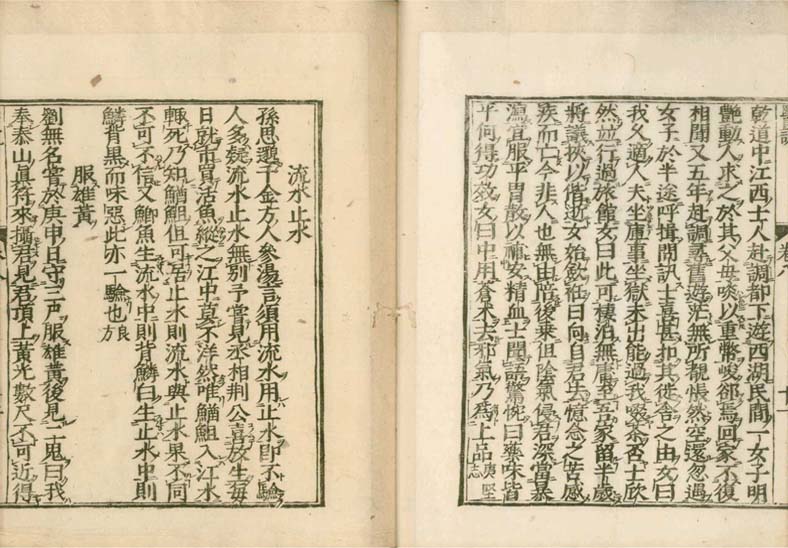 乾道中江西士人赴調都下遊西湖民間一女子明
艷動人求之於其父毋啖以重幣峻郤焉回家不復
相聞又五年赴調尋舊遊茫無所覩悵然空還忽過
女子於半途呼揖問訊士喜甚扣其徙舍之由女曰
我父適人夫坐庫事坐獄未出能過我啜茶否士欣
然竝行過旅館女曰此可棲泊無庸至吾家留半歲
將議挾以偕逝女始歛衽曰向自君去憶念之苦感
疾而亡今非人也無由陪後乗但陰氣侵君深當暴
瀉宜服平胃散以補安精血士聞語驚惋曰藥味皆
平何得功效女曰中用蒼术去邪氣乃爲上品庚堅志
醫說
卷八
流水止水
孫思邈千金方人參湯言須用流水用止水卽不驗
人多疑流水止水無別予嘗見丞相荆公喜放生每
日就市買活魚縱之江中莫不洋然唯鰌䱇入江水
輒死乃知鰌䱇但可居止水則流水與止水果不同
不可不信又鯽魚生流水中則背鱗白生止水中則
鱗背黑而味惡此亦一驗也良方
服雄黃
劉無名嘗於庚申日守三尸服雄黃後見一鬼曰我
奉泰山眞符來攝君見君頂上黃光數尺不可近得